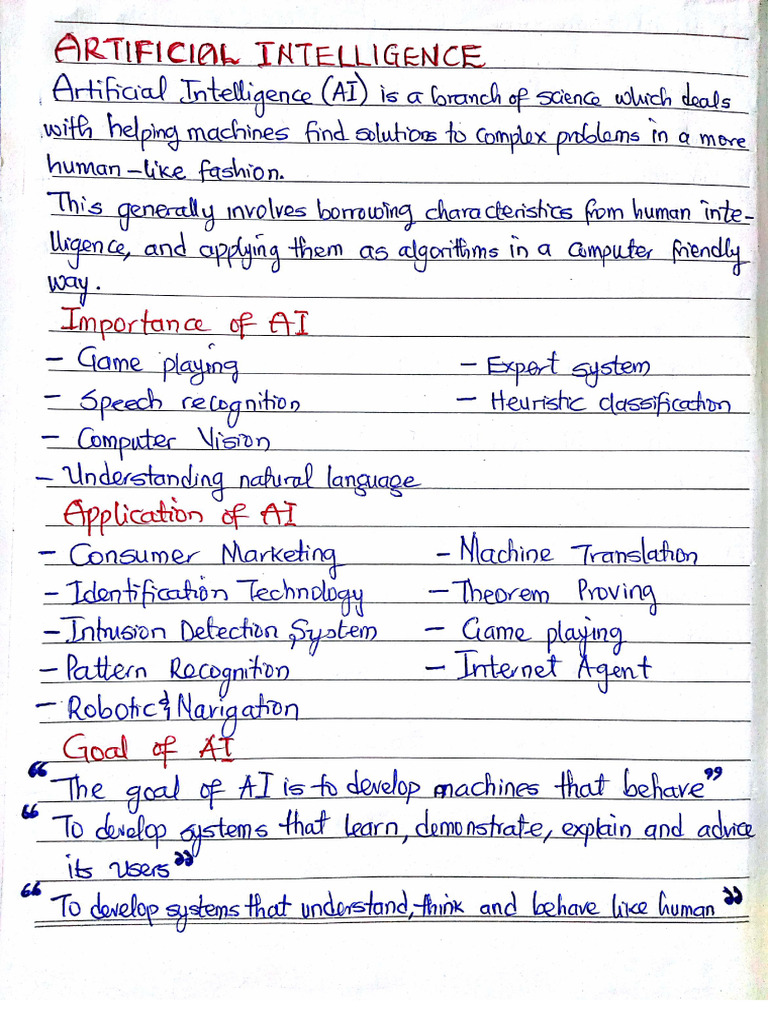 ARTIFICIAL INTELLIGENCE
Artificial Intelligence (AI) is a branch of science which deals
with helping machines find solutions to complex problems in a more
human-like fashion.
This generally involves borrowing characteristics from human inte-
lligence, and applying them as algorithms in a computer friendly
way.
Importance of AI
- Game playing - Expert system
- Speech recognition - Heuristic classification
- Computer Vision
- Understanding natural language
Application of AI
- Consumer Marketing - Machine Translation
- Identification Technology - Theorem Proving
- Intrusion Detection System - Game playing
- Pattern Recognition - Internet Agent
- Robotic & Navigation
Goal of AI
"The goal of AI is to develop machines that behave"
"To develop systems that learn, demonstrate, explain and advice
its users"
"To develop systems that understand, think and behave like human"